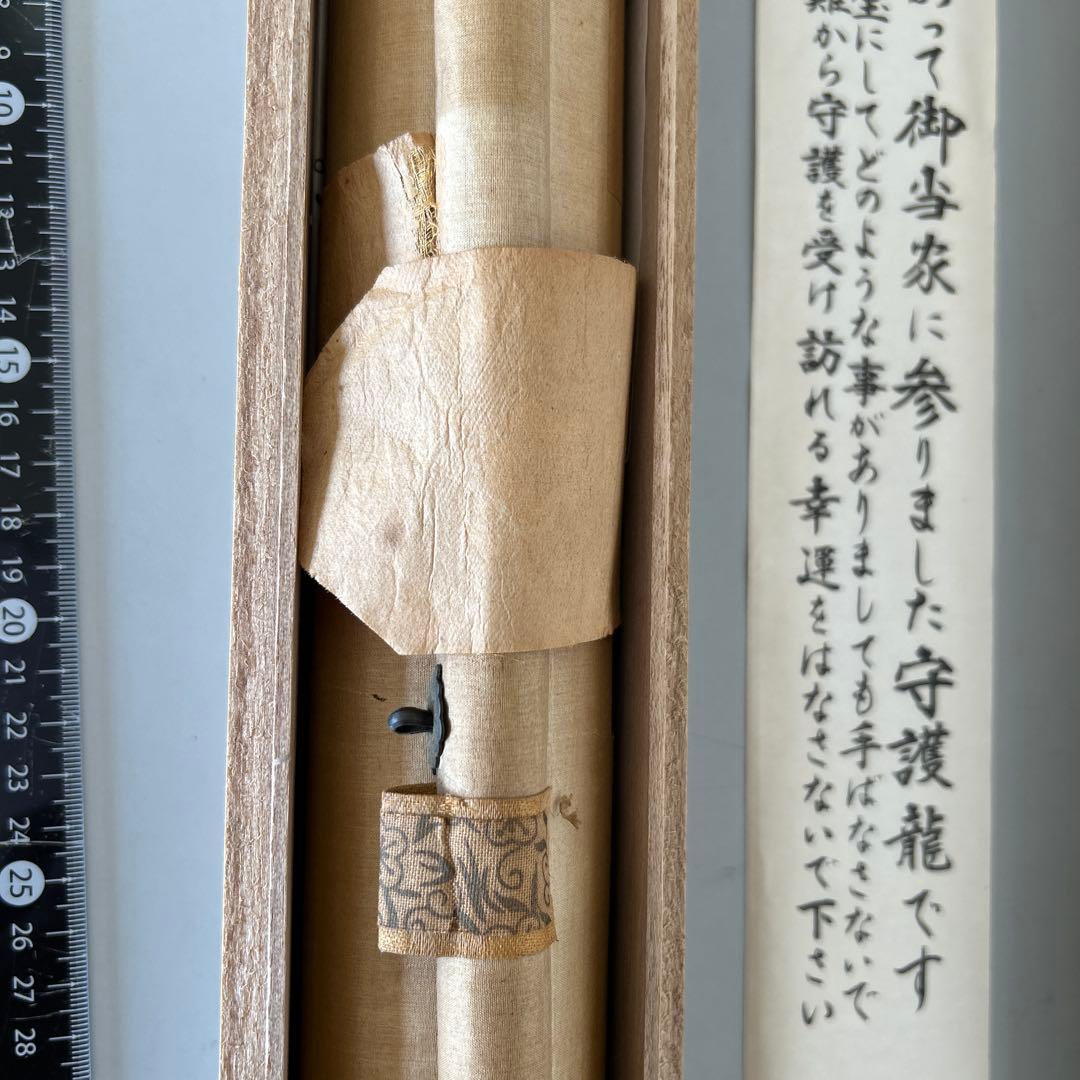 って御当家に参りました守護龍です
宝にしてどのような事がありましても手ばなさないで
難から守護を受け訪れる幸運をはなさないで下さい
9
10
11
12
13
14
15
16
17
18
19
20
21
22
23
24
25
26
27
28